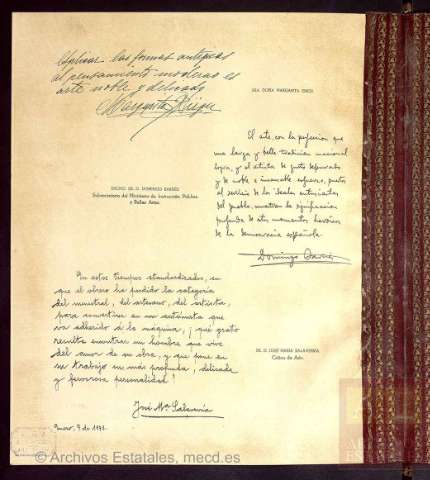 Aplicar las formas antiguas
al pensamiento moderno es
arte noble y delicado
Margarita
SRA. DOÑA MARGARITA
El arte, con la perfección que
una larga y bella tradición nacional
logra, y el artista de gusto depurado
y de noble e incansable esfuerzo, puestos
al servicio de los ideales entusiastas
del pueblo, muestran la significación
profunda de estos momentos heroicos
de la democracia española.
Domingo Barnés
EXCMO. SR. D. DOMINGO BARNÉS
Subsecretario del Ministerio de Instrucción Pública
y Bellas Artes.
En estos tiempos standardizados, en
que el obrero ha perdido la categoría
del menestral, del artesano, del artista,
para convertirse en un autómata que
va adherido a la máquina, ¡qué grato
resulta encontrar un hombre que vive
del amor de su obra, y que pone en
su trabajo su más profunda, delicada
y fervorosa personalidad!
José Mª Salaverría
Enero, 9 de 1932
SR. D. JOSÉ MARÍA SALAVERRÍA
Crítico de Arte.
© Archivos Estatales, mecd.es